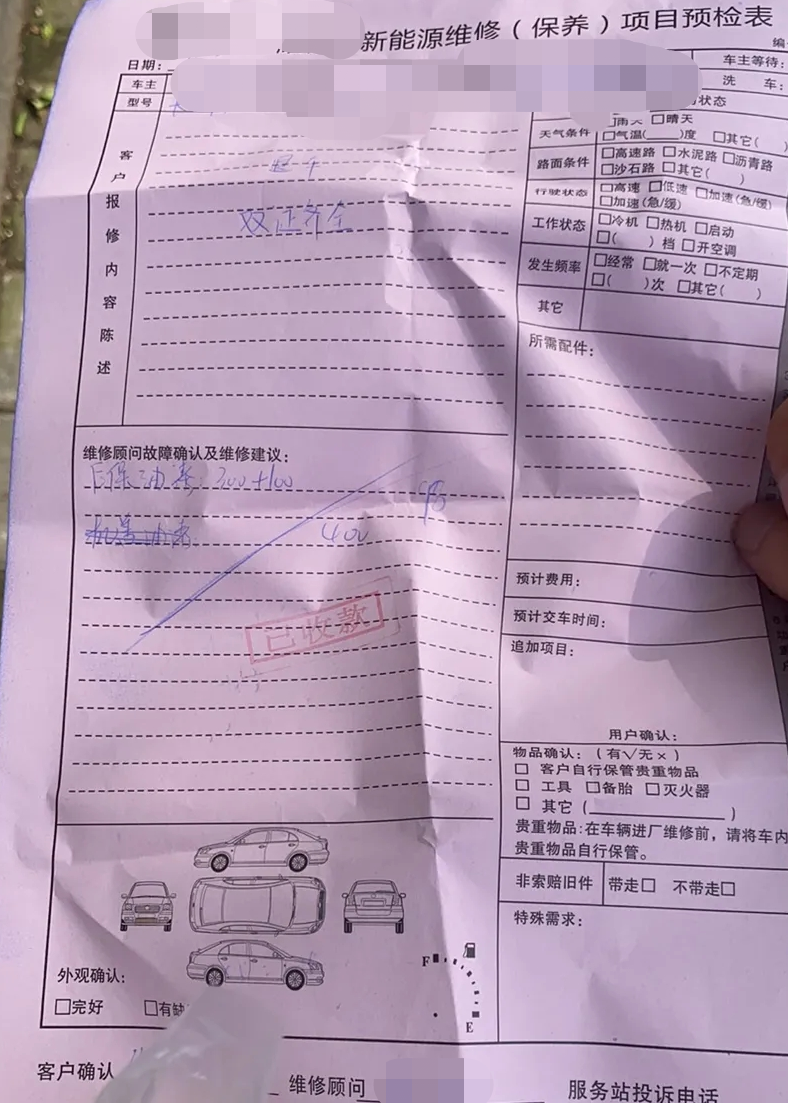 新能源维修（保养）项目预检表
编
日期：
车主等待：
车主
洗 车：
型号
状态
客户报修内容陈述
双证齐全
天气条件 □雨天 □晴天
□气温( )度 □其它( )
路面条件 □高速路 □水泥路 □沥青路
□沙石路 □其它( )
行驶状态 □高速 □低速 □加速(急/缓)
□加速(急/缓)
工作状态 □冷机 □热机 □启动
□( )档 □开空调
发生频率 □经常 □就一次 □不定期
□( )次 □其它( )
其它
所需配件：
维修顾问故障确认及维修建议：
保油漆：300+100
400
已收款
预计费用：
预计交车时间：
追加项目：
用户确认：
物品确认：（有√无×）
□ 客户自行保管贵重物品
□ 工具 □备胎 □灭火器
□ 其它（ ）
贵重物品:在车辆进厂维修前，请将车内
贵重物品自行保管。
非索赔旧件 带走□ 不带走□
特殊需求：
外观确认：
□完好 □有缺
F
E
客户确认
维修顾问
服务站投诉电话